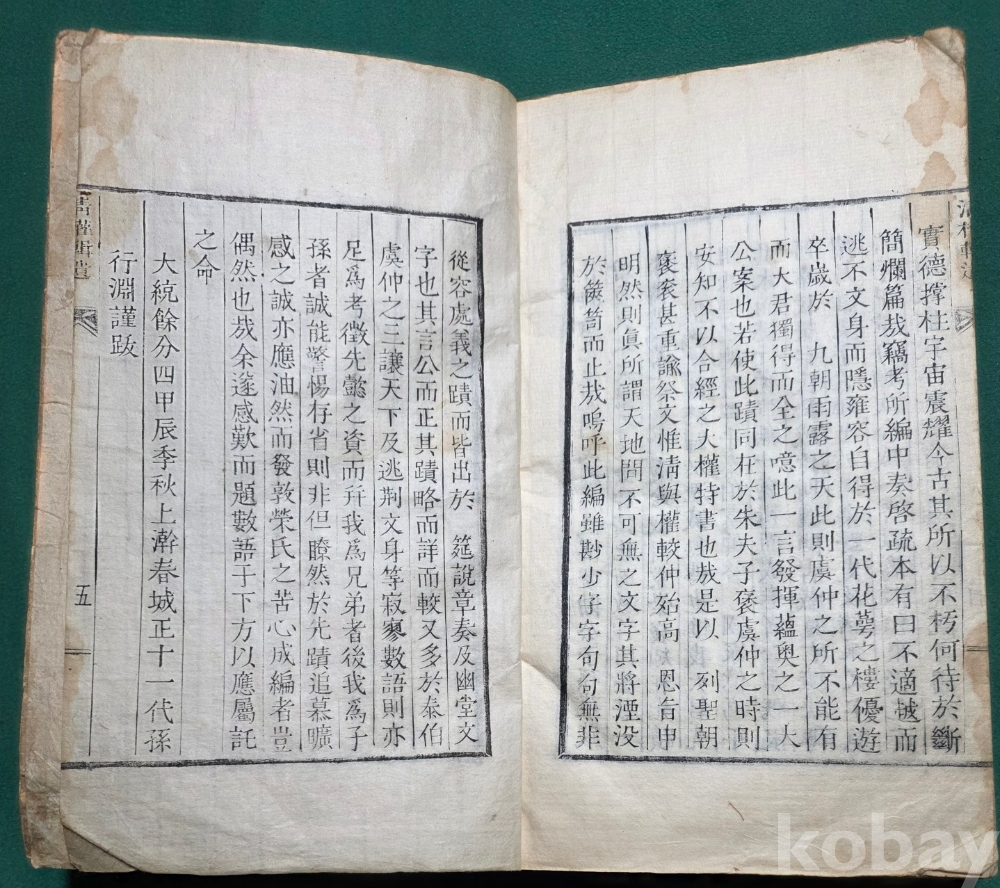 實德撑柱宇宙震耀今古其所以不朽何待於斷
簡爛篇哉竊考所編中奏啓疏本有曰不適越而
逃不文身而隱雍容自得於一代花萼之樓優遊
卒歲於 九朝雨露之天此則虞仲之所不能有
而大君獨得而全之噫此一言發揮蘊奧之一大
公案也若使此蹟同在於朱夫子褒虞仲之時則
安知不以合經之大權特書也哉是以 列聖朝
褒衮甚重諭祭文惟淸與權較仲殆高 恩旨申
明然則眞所謂天地間不可無之文字其將湮没
於篋笥而止哉嗚呼此編雖尠少字字句句無非
從容處義之蹟而皆出於 筵說章奏及幽堂文
字也其言公而正其蹟略而詳而較又多於泰伯
虞仲之三讓天下及逃荆文身等寂寥數語則亦
足爲考徵先懿之資而幷我爲兄弟者後我爲子
孫者誠能警惕存省則非但瞭然於先蹟追慕曠
感之誠亦應油然而發敦榮氏之苦心成編者豈
偶然也哉余遂感歎而題數語于下方以應屬託
之命
大統餘分四甲辰季秋上澣春城正十一代孫
行淵謹跋
五
kobay